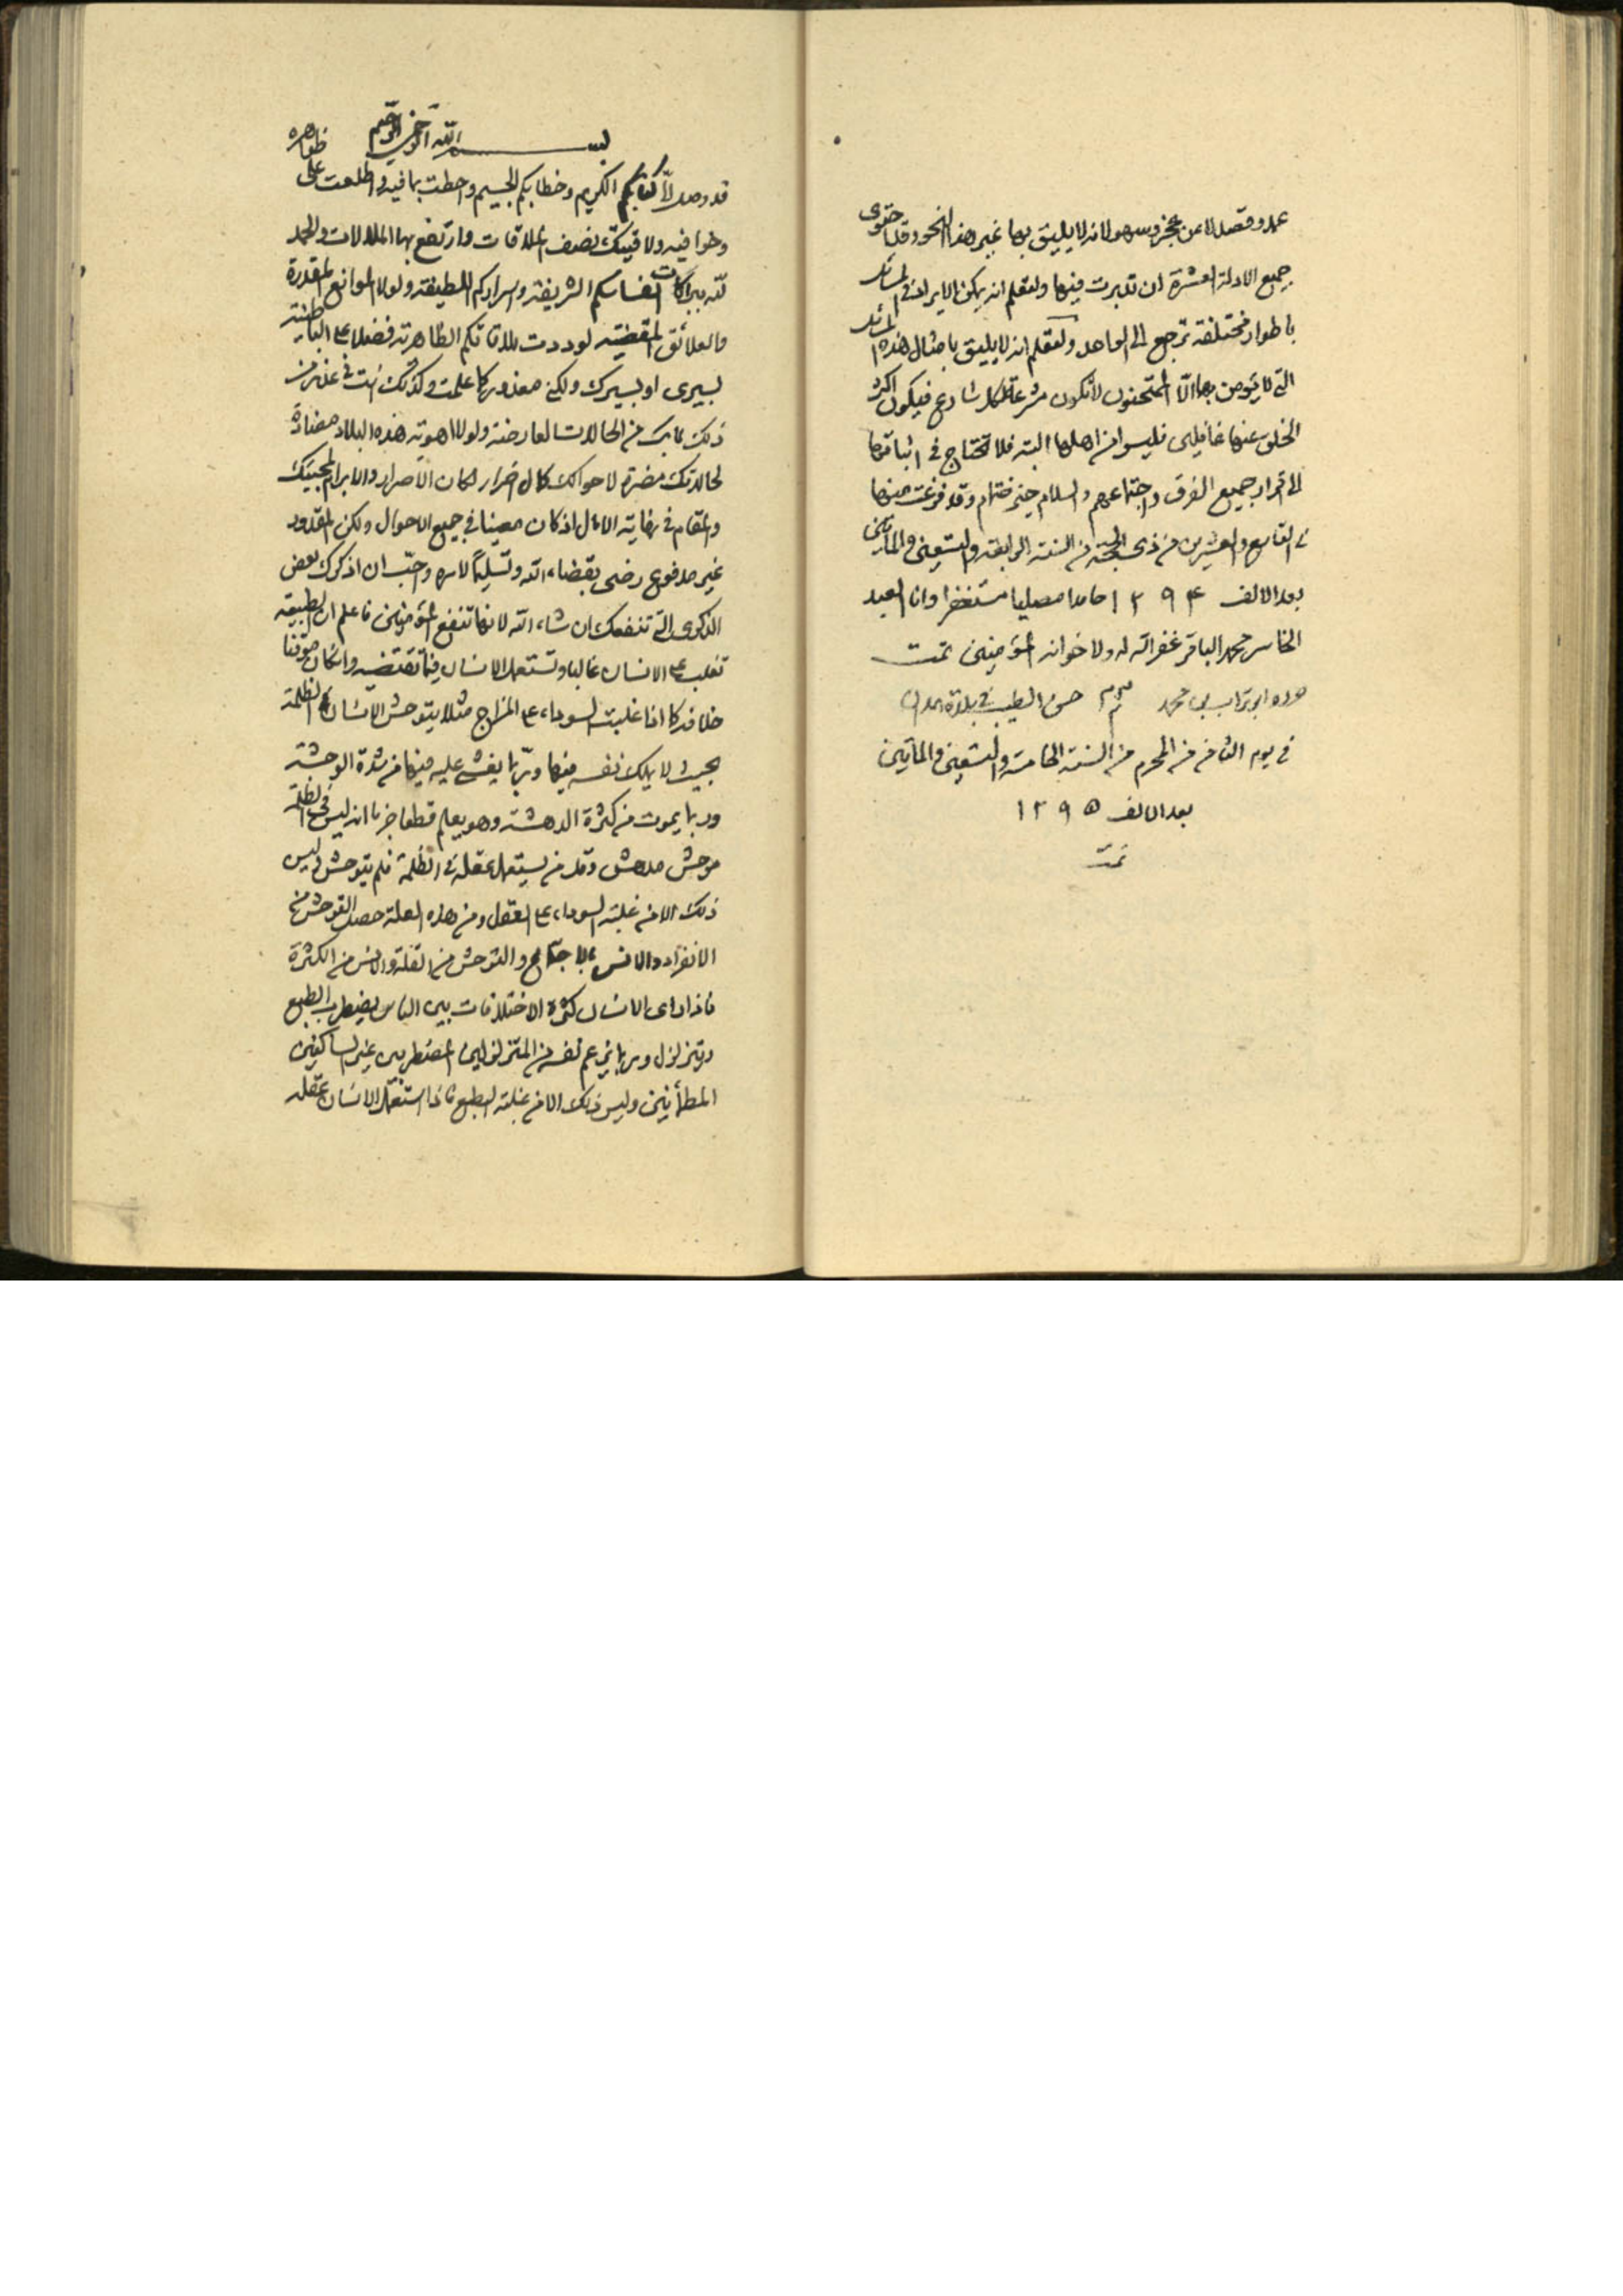 عمد وقصد لا عن عجز وسهو لانه لا يليق بها غير هذا النحو وقد احتوى
جميع الادلة العشرة ان تدبرت فيها ولتعلم انه يمكن الايراد في المسائل
باطوار مختلفة ترجع الى الواحد ولتعلم انه لا يليق بامثال هذه المسائل
التى لا يؤمن بها الّا الممتحنون لا تكون شرعة لكل شارع فيكون اكثر
الخلق عنها غافلين فليسوا من اهلها البتة فلا تحتاج في اثباتها
الى اقرار جميع الفرق واجتماعهم والسلام خير ختام وقد فرغت منها
في التاسع والعشرين من ذى الحجة من السنة الرابعة والتسعين والمأتين
بعد الالف ١٢٩٤ حامدا مصليا مستغفرا وانا العبد
الخاسر محمد الباقر غفر الله له ولاخوانه المؤمنين تمت
حرره ابو تراب بن محمد حسن الطبيب في بلدة همدان
في يوم الثامن من المحرم من السنة الخامسة والتسعين والمأتين
بعد الالف ١٢٩٥
تمت
بسم الله الرحمن الرحيم
قد وصل الىّ كتابكم الكريم وخطابكم الجسيم واحطت بما فيه واطلعت على ظواهره
وخوافيه ولاقيتك نصف الملاقات وارتفع بها الملالات والحمد
لله ببركات انفاسكم الشريفة واسراركم اللطيفة ولولا الموانع المقدرة
والعلائق المقضية لوددت ملاقاتكم الظاهرة فضلا عن الباطنة
بسيرى او بسيرك ولكنى معذور كما علمت وكذلك انت في عذر من
ذلك لما بك من الحالات العارضة ولولا اهوية هذه البلاد مضادة
لحالاتك مضرة لاحوالك كمال اضرار لكان الاصرار والابرام لمجيئك
والمقام في نهاية الامل اذ كان معينا في جميع الاحوال ولكن المقدور
غير مدفوع رضى بقضاء الله وتسليماً لامره واحبّ ان اذكرك بعض
الذكرى التى تنفعك ان شاء الله لانها تنفع المؤمنين فاعلم ان الطبيعة
تغلب على الانسان غالبا وتستعمل الانسان فيما تقتضيه وان كان موقنا
خلافه كما اذا غلبت السوداء على المزاج مثلا يتوحش الانسان في الظلمة
بحيث لا يملك نفسه فيها وربّما يغشى عليه فيها من شدة الوحشة
وربما يموت من كثرة الدهشة وهو يعلم قطعا جزما انه ليس في الظلمة
موحش مدهش وقد من يستعمل عقله في الظلمة فلم يتوحش وليس
ذلك الا من غلبة السوداء على العقل ومن هذه العلة حصل التوحش من
الانفراد والانس بالاجتماع والتوحش من القلة والانس من الكثرة
فاذا راى الانسان كثرة الاختلافات بين الناس يضطرب بالطبع
ويتزلزل وربما يزعم نفسه من المتزلزلين المضطربين غير الساكنين
المطمأنين وليس ذلك الا من غلبة الطبع فاذا استعمل الانسان عقله